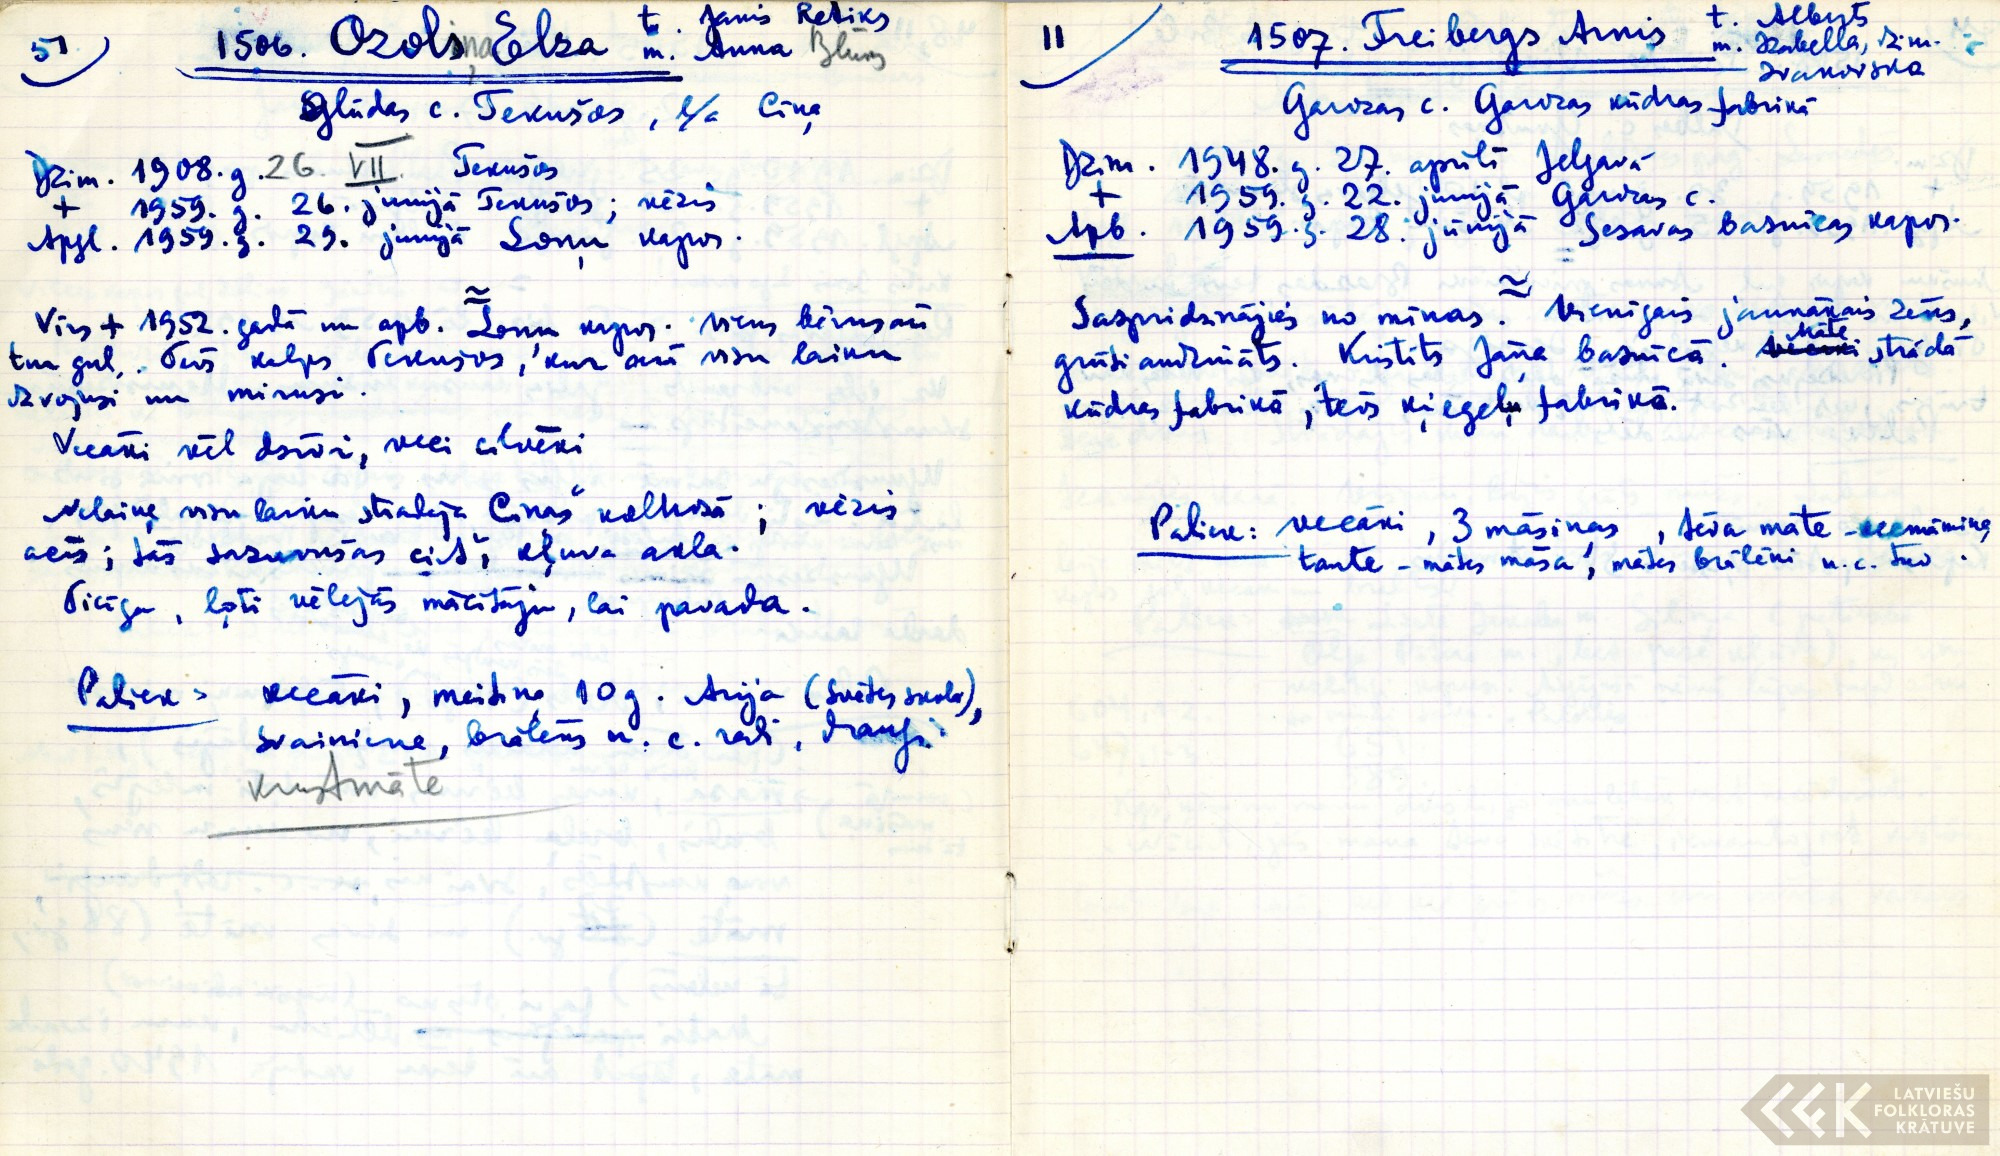 51
1506. Ozoliņa Elza t. Janis Retiks
m. Anna
Glūdas c. Tekušos, l/a Ciņa
Dzim. 1908. g. 26. VII. Tekušos
+ 1959. g. 26. jūnijā Tekušos; vēzis
Apgl. 1959. g. 29. jūnijā Loņu kapos.
Vīrs + 1952. gadā un apb. Loņu kapos. Viens bērns arī
tur gul. Tēvs kalps Tekušos, kur arī visu laiku
dzvojusi un mirusi.
Vecāki vēl dzīvi, veci cilvēki
Nelaiķe visu laiku stradaja Ciņas" kolhozā; vēzis
acīs; tās sazuvušas ciet, kļuva akla.
Ticīga, ļoti vēlejās mācītāju, lai pavada.
Paliek: vecāki, meitiņa 10 g. Arija (Svētes skola),
svainiene, brālēns u. c. radi, draugi.
krustmāte
11
1507. Freibergs Arnis t. Alberts
m. Izabella, dzim.
Garozas c. Garozas kūdras fabrikā
Dzim. 1948. g. 27. aprīlī Jelgavā
+ 1959. g. 22. jūnijā Garozas c.
Apb. 1959. g. 28. jūnijā Sesavas baznīcas kapos.
Saspridzinājies no mīnas. Vienīgais jaunākais zēns,
grūti audzināts. Kristīts Jāņa baznīcā. māte strādā
kūdras fabrikā, tēvs ķieģeļu fabrikā.
Paliek: vecāki, 3 māsiņas, tēva māte - vecmāmiņa
tante - mātes māsa, mātes brālēni u. c. tuv.
LATVIEŠU
FOLKLORAS
KRĀTUVE